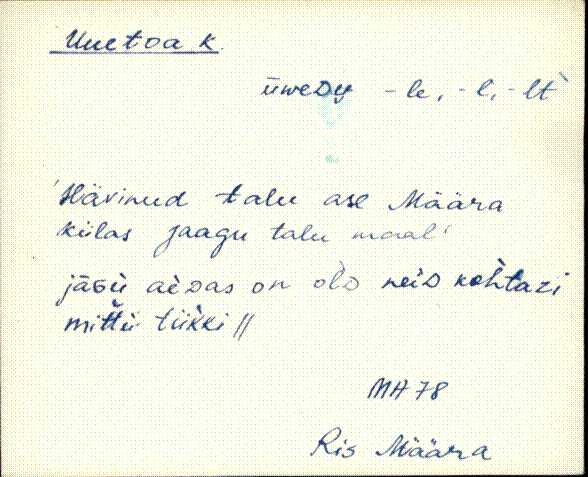 Uuetoa k.
üweDy -le, -l, -lt`
'Hävinud talu ase Määra
külas jaagu talu maal'
jäGü aeDas on olD neiD kohtazi
mittü tükki //
MH 78
Ris Määra